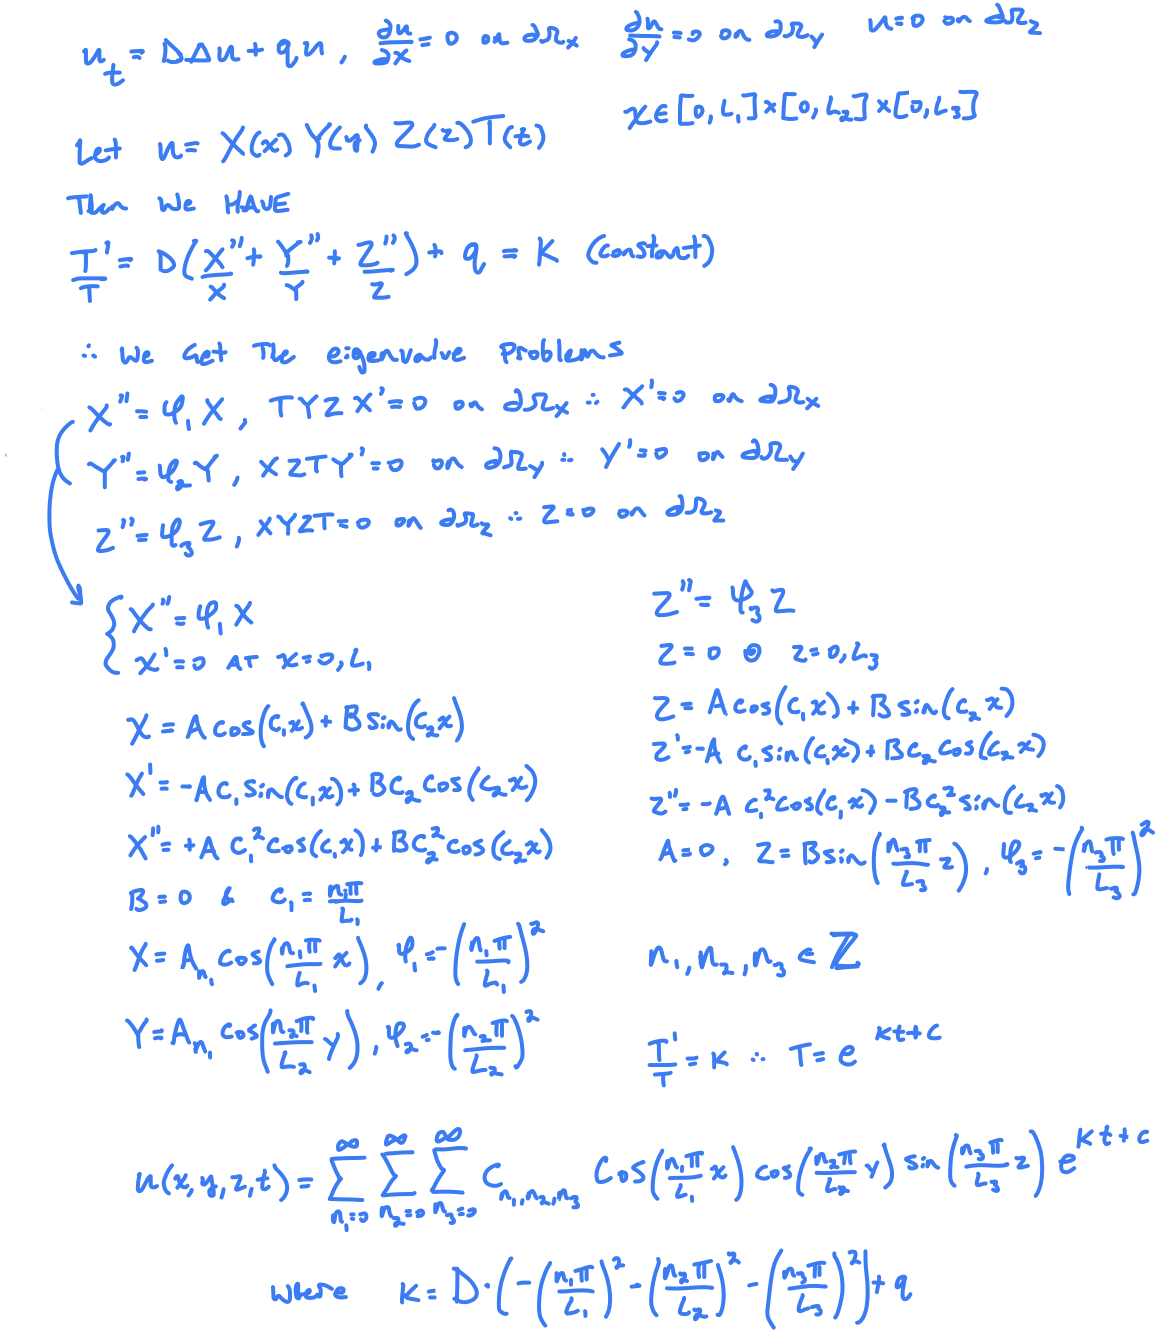 u_t = DΔu + qu, ∂u/∂x = 0 on ∂Ω_x ∂u/∂y = 0 on ∂Ω_y u = 0 on ∂Ω_z
x ∈ [0, L_1] × [0, L_2] × [0, L_3]
Let u = X(x) Y(y) Z(z) T(t)
Then we HAVE
T'/T = D(X''/X + Y''/Y + Z''/Z) + q = K (constant)
∴ we Get The eigenvalue problems
X'' = φ_1 X, TYZX' = 0 on ∂Ω_x ∴ X' = 0 on ∂Ω_x
Y'' = φ_2 Y, XZTY' = 0 on ∂Ω_y ∴ Y' = 0 on ∂Ω_y
Z'' = φ_3 Z, XYZT = 0 on ∂Ω_z ∴ Z = 0 on ∂Ω_z
{ X'' = φ_1 X
X' = 0 AT x = 0, L_1
X = A cos(c_1 x) + B sin(c_2 x)
X' = -A c_1 sin(c_1 x) + B c_2 cos(c_2 x)
X'' = + A c_1^2 cos(c_1 x) + B c_2^2 cos(c_2 x)
B = 0 & c_1 = n_1π/L_1
X = A_{n_1} cos(n_1π/L_1 x), φ_1 = -(n_1π/L_1)^2
Y = A_{n_1} cos(n_2π/L_2 y), φ_2 = -(n_2π/L_2)^2
Z'' = φ_3 Z
Z = 0 @ z = 0, L_3
Z = A cos(c_1 x) + B sin(c_2 x)
Z' = -A c_1 sin(c_1 x) + B c_2 cos(c_2 x)
Z'' = -A c_1^2 cos(c_1 x) - B c_2^2 sin(c_2 x)
A = 0, Z = B sin(n_3π/L_3 z), φ_3 = -(n_3π/L_3)^2
n_1, n_2, n_3 ∈ ℤ
T'/T = K ∴ T = e^{Kt+c}
u(x, y, z, t) = ∑_{n_1=0}^∞ ∑_{n_2=0}^∞ ∑_{n_3=0}^∞ C_{n_1,n_2,n_3} cos(n_1π/L_1 x) cos(n_2π/L_2 y) sin(n_3π/L_3 z) e^{Kt+c}
where K = D·(-(n_1π/L_1)^2 - (n_2π/L_2)^2 - (n_3π/L_3)^2) + q